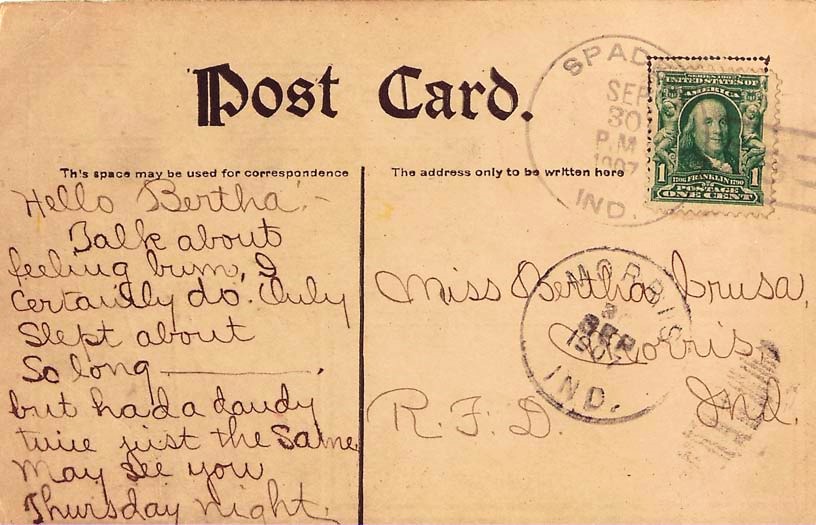 Post Card.
SPAD
SEP
30
P.M
1907
IND.
SERIES 1902
UNITED STATES OF
AMERICA
1 1706 FRANKLIN 1790 1
POSTAGE
ONE CENT
This space may be used for correspondence
The address only to be written here
Hello Bertha:-
Talk about
feeling bum, I
certainly do. Only
Slept about
So long ———.
but had a dandy
time just the Same
May see you
Thursday night.
Miss Bertha
Morris,
R.F.D. Ind.
MORRIS
SEP
1907
IND.